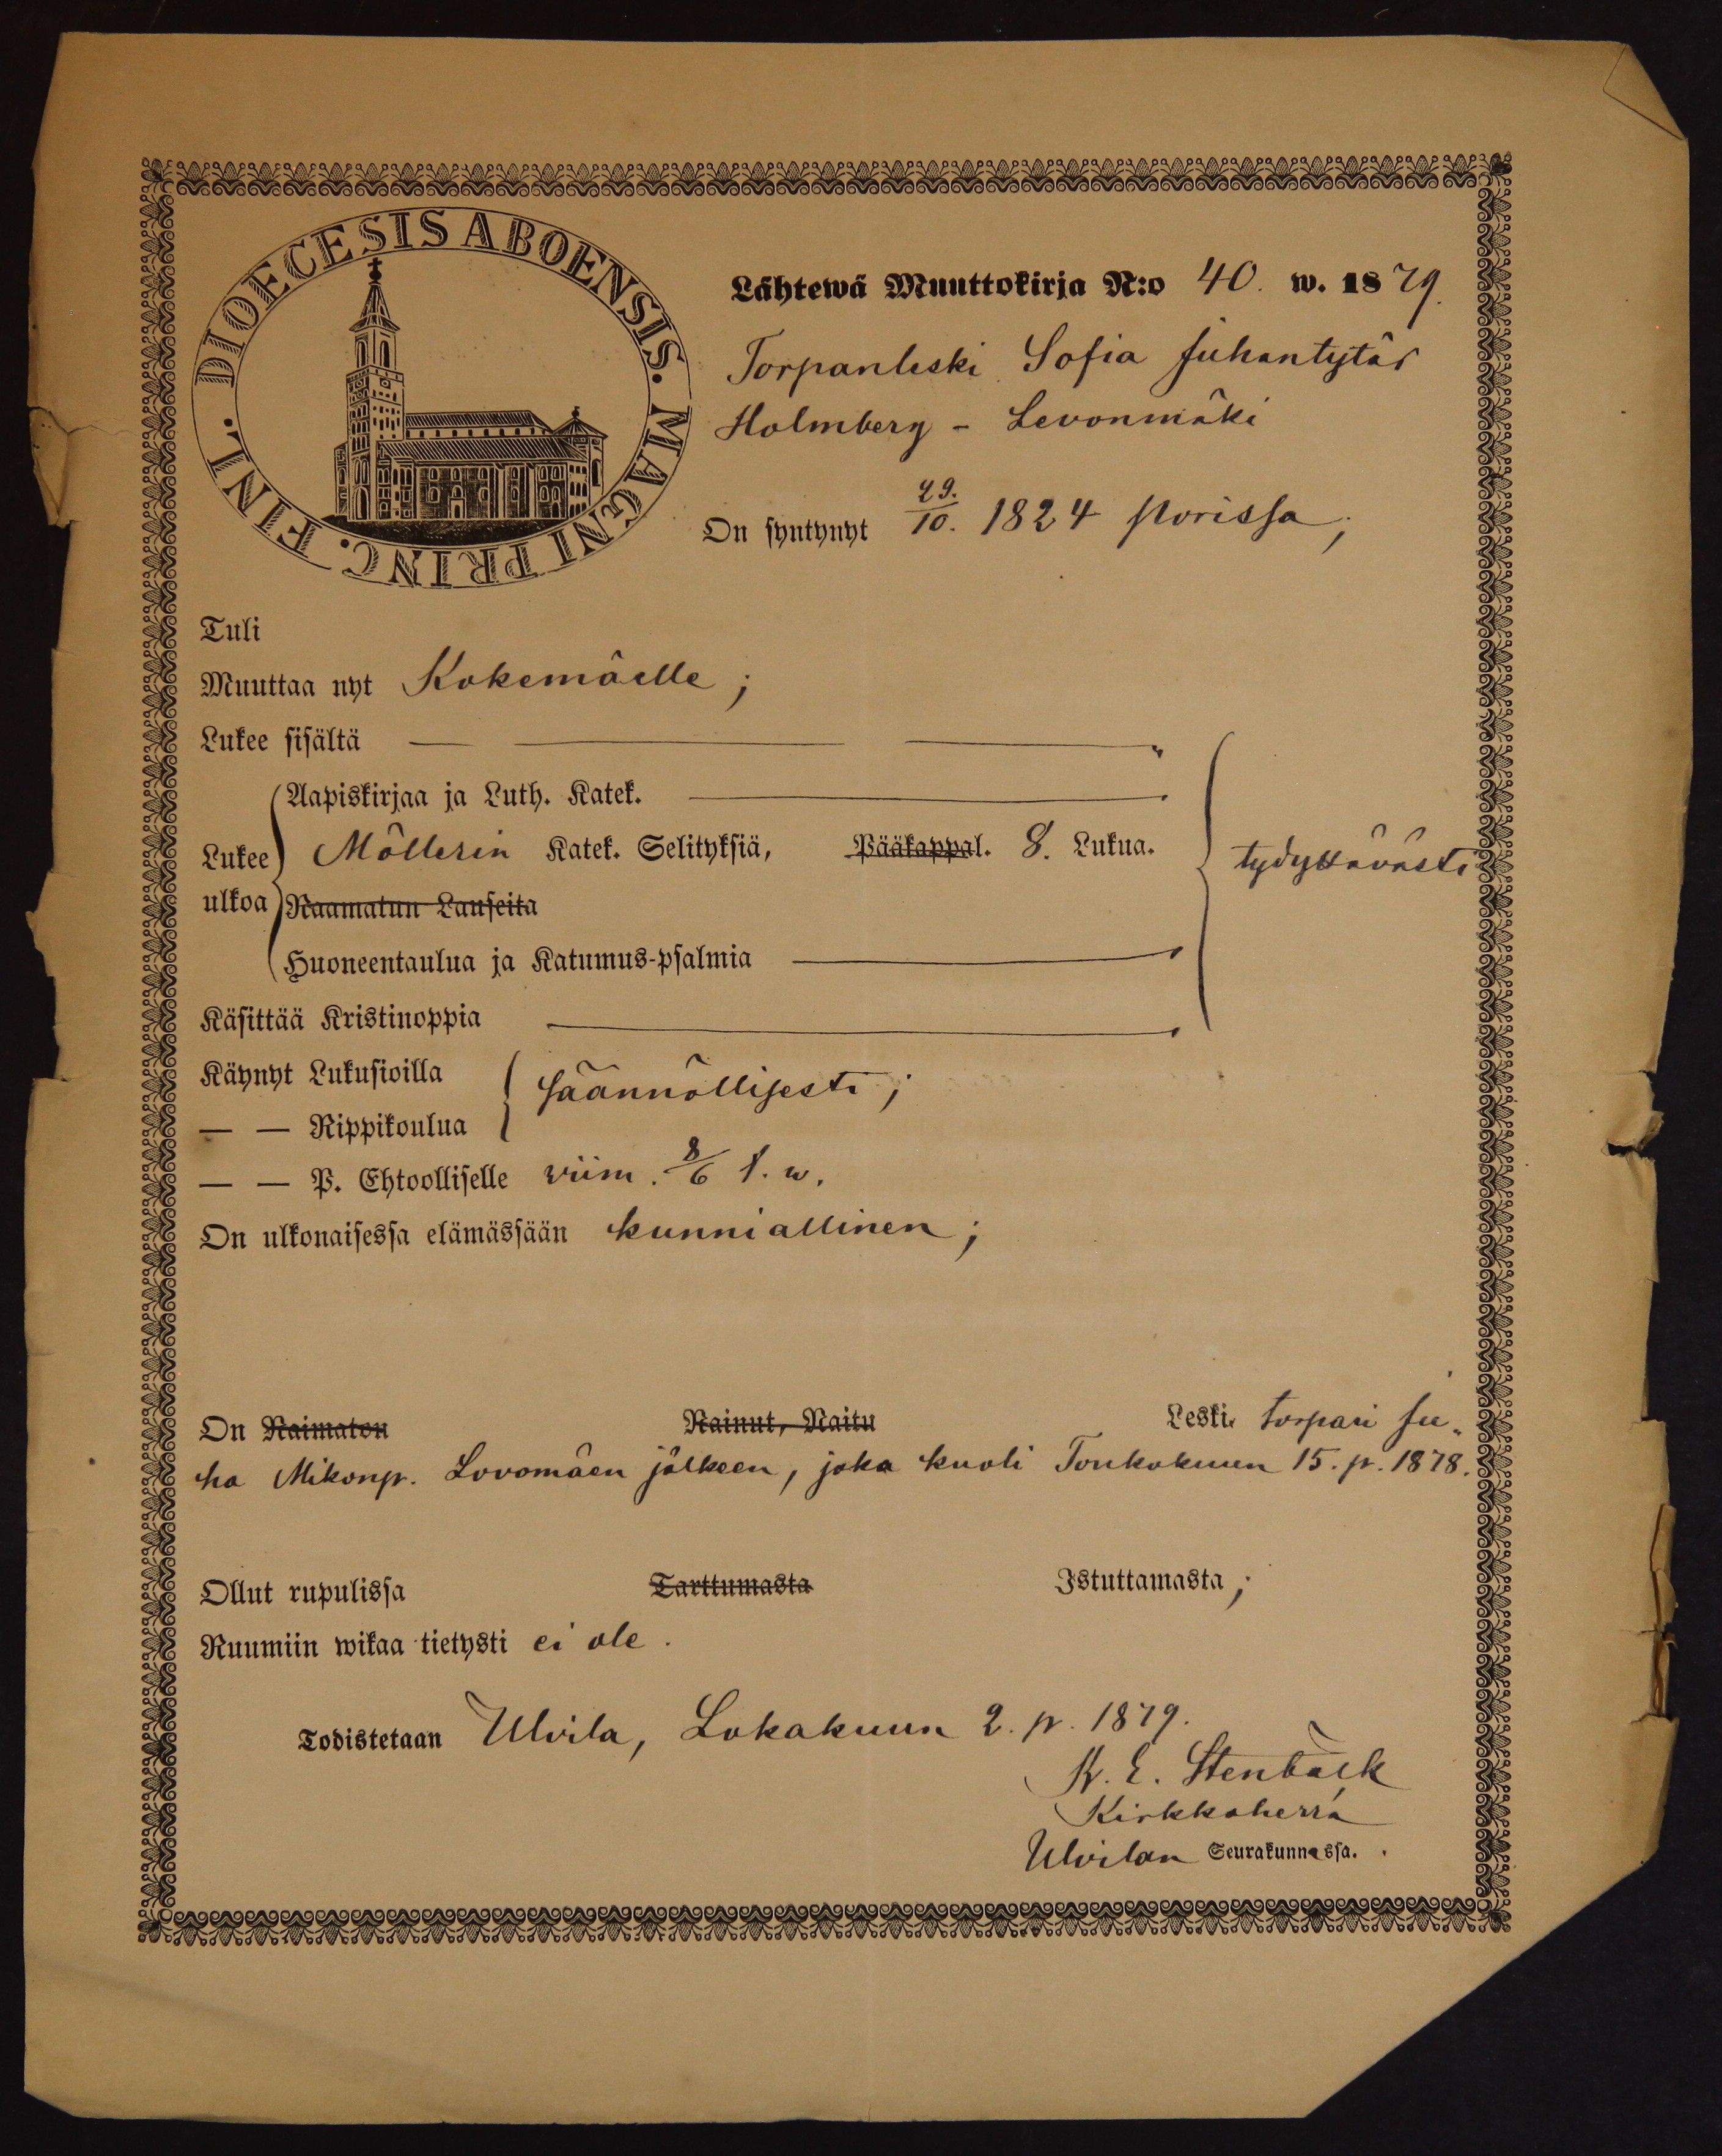 DIOECESIS ABOENSIS. MAGNI PRINC. FINL.
Lähtewä Muuttokirja N:o 40. w. 1879.
Torpanleski Sofia Juhantytär
Holmberg - Levonmäki
On syntynyt 29./10. 1824 Porissa;
Tuli
Muuttaa nyt Kokemäelle;
Lukee sisältä
Aapiskirjaa ja Luth. Katek.
Lukee ulkoa Möllerin Katek. Selityksiä, Pääkappal. 8. Lukua. tydyttävästi
Raamatun Lauseita
Huoneentaulua ja Katumus-psalmia
Käsittää Kristinoppia
Käynyt Lukusioilla
— — Rippikoulua säännöllisesti;
— — P. Ehtoolliselle viim. 8/6 t. w.
On ulkonaisessa elämässään kunniallinen;
On Naimaton Nainut, Naitu Leski, torpari Ju„
ha Mikonp. Lovomäen jälkeen, joka kuoli Toukokuun 15. p. 1878.
Ollut rupulissa Tarttumasta Istuttamasta;
Ruumiin wikaa tietysti ei ole.
Todistetaan Ulvila, Lokakuun 2. p. 1879.
K. E. Stenbäck
Kirkkoherra
Ulvilan Seurakunnassa.